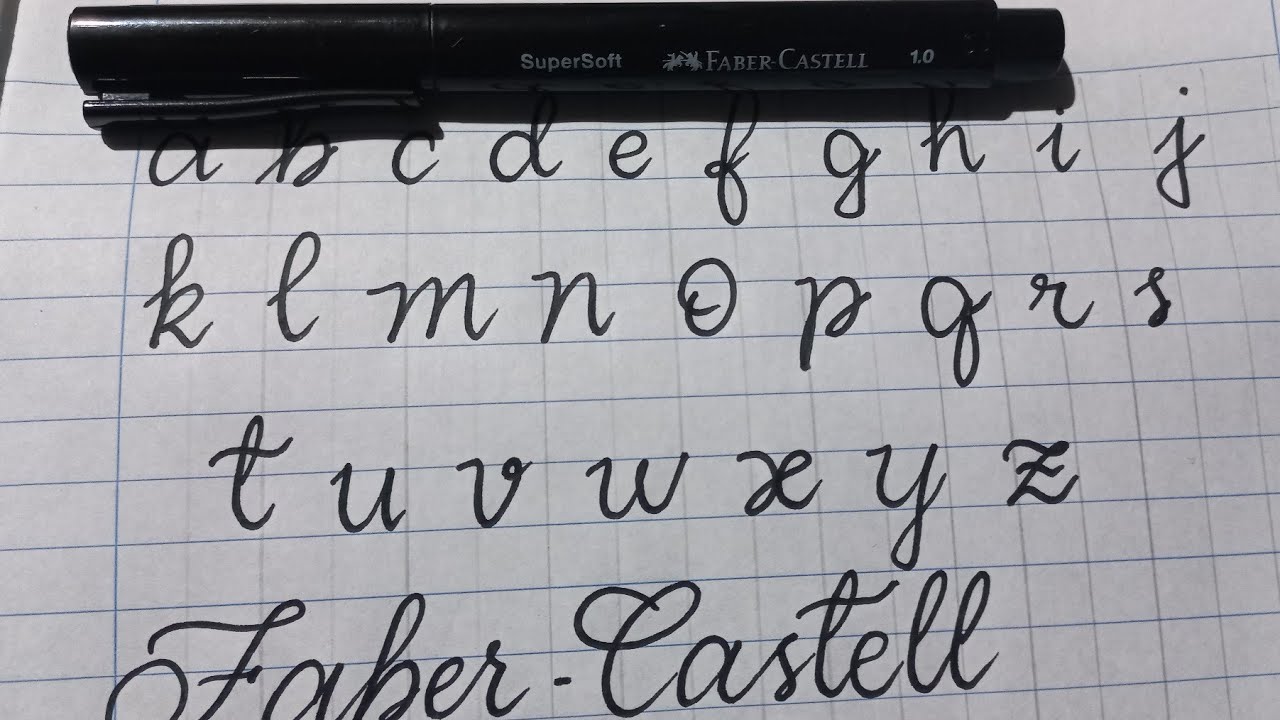 SuperSoft FABER-CASTELL 1.0
a b c d e f g h i j
k l m n o p q r s
t u v w x y z
Faber-Castell